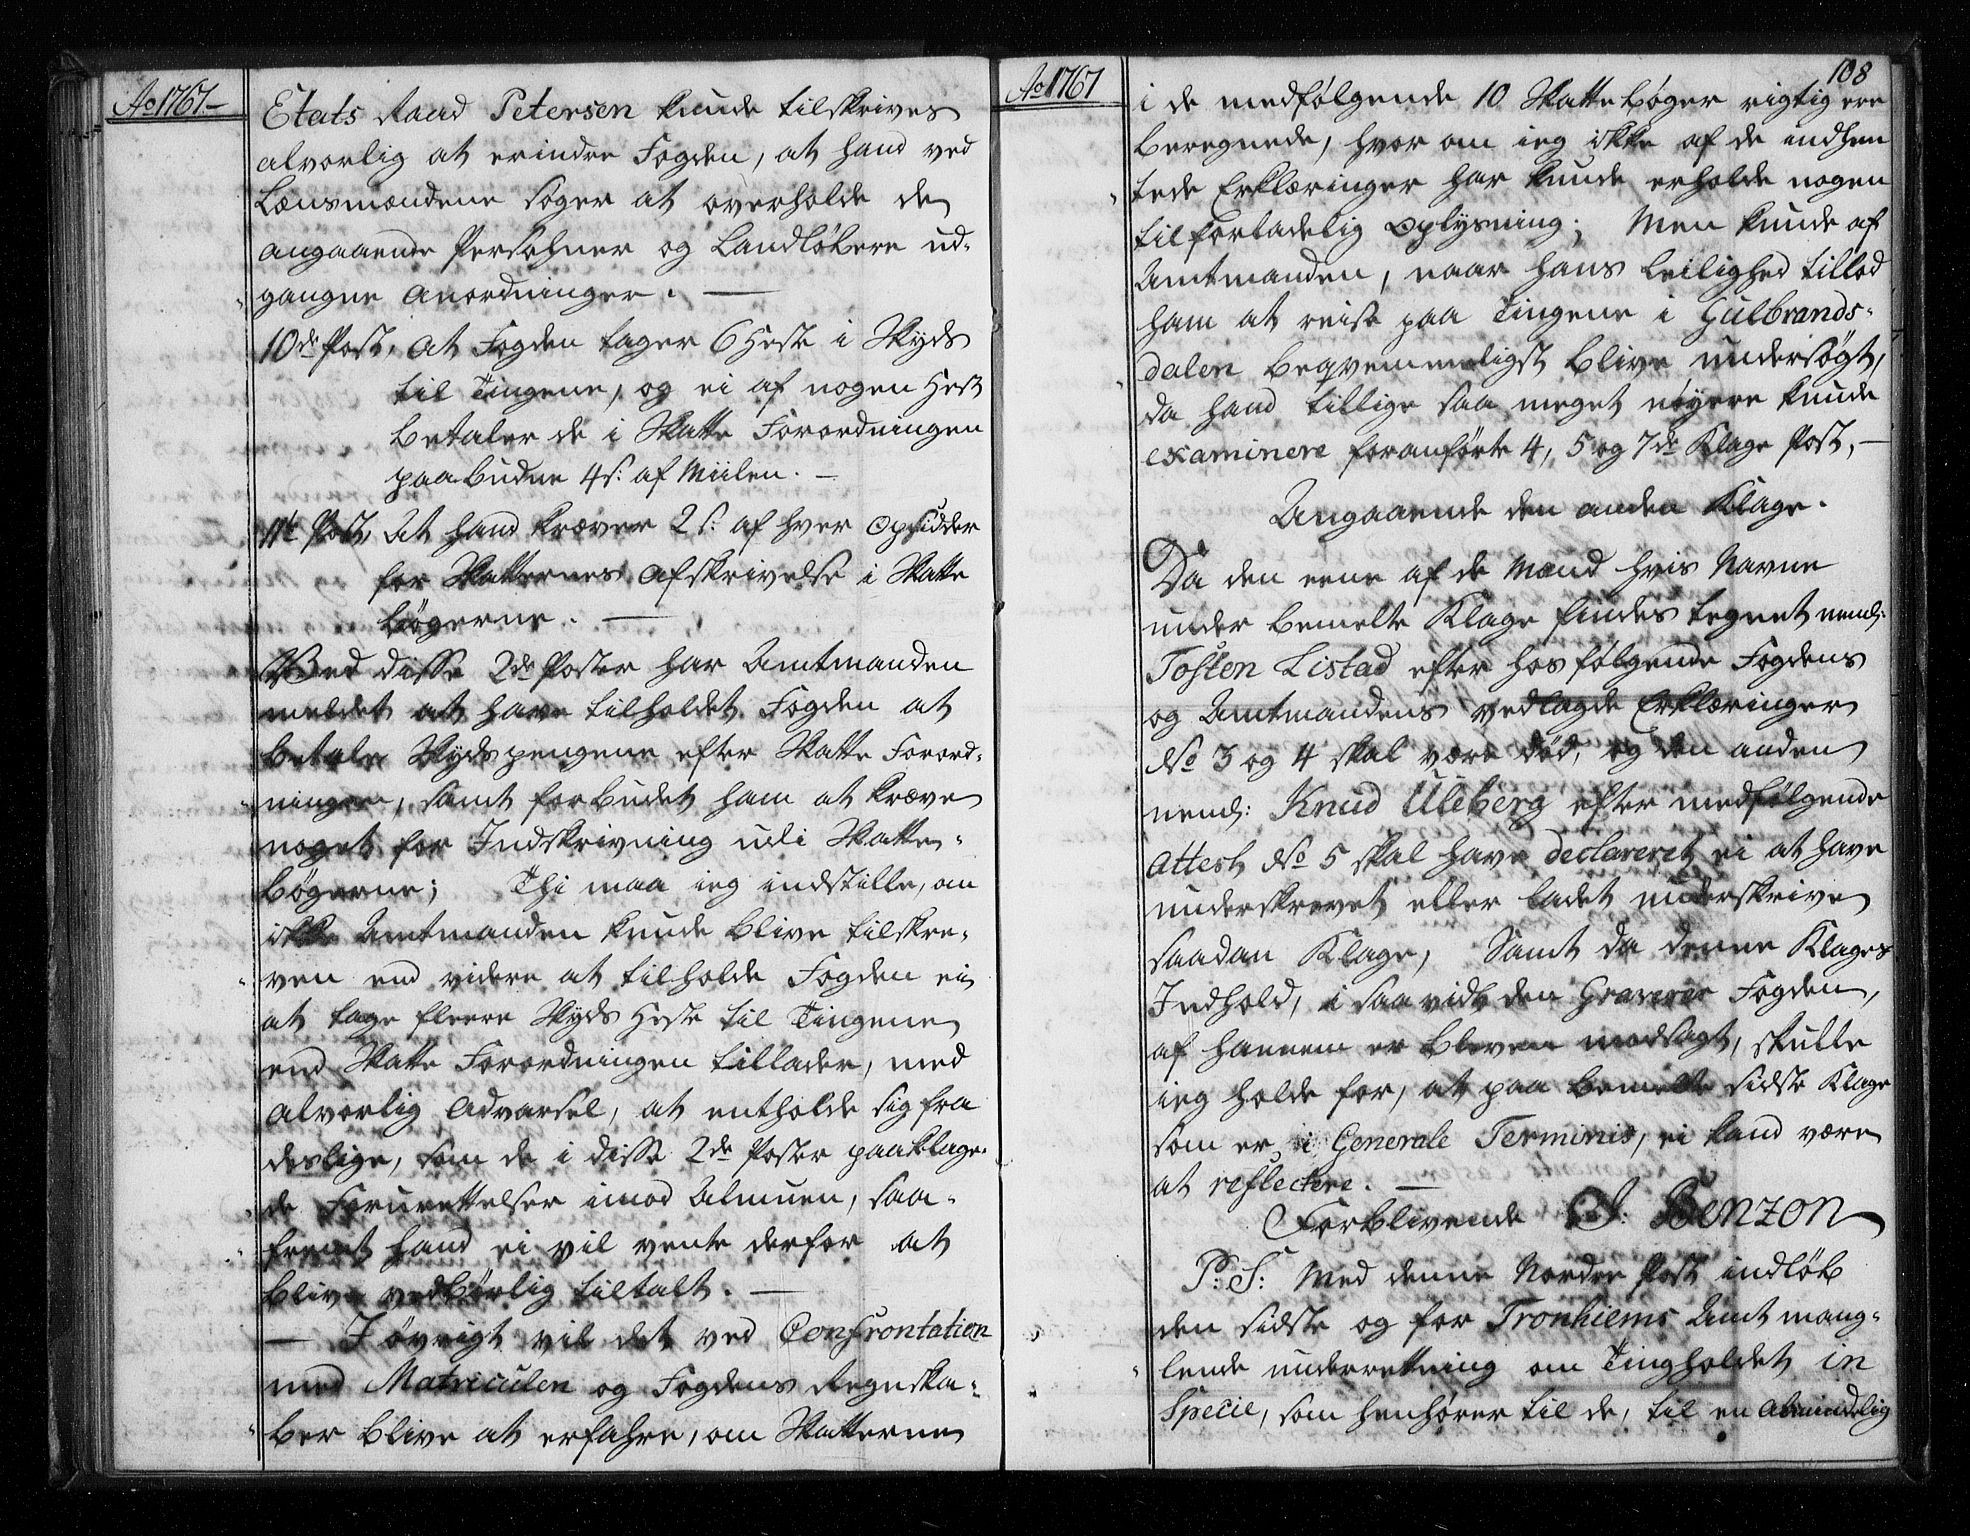 Ao 1767.-
Etats Raad Petersen kunde tilskrives
alvorlig at erindre Fogden, at hand ved
Lænsmændene søger at overholde de
angaaende Persohner og Landløbere ud-
gangne Anordninger. —
10de Post, At Fogden tager 6 Heste i Skyds
til Tingene, og ei af nogen Hest
betaler de i Skatte Forordningen
paabudne 4 s: af Miilen. —
11te Post, At hand kræver 2 s: af hver Opsidder
for Skatternes Afskrivelse i Skatte
bøgerne. —
Ved disse 2de Poster har Amtmanden
meldet at have tilholdet Fogden at
betale Skydspengene efter Skatte Forord-
ningen, samt forbudet ham at kræve
noget for Indskrivning udi Skatte-
bøgerne; Thi maa ieg indstille, om
ikke Amtmanden kunde blive tilskre-
ven end videre at tilholde Fogden ei
at tage fleere Skyds Heste til Tingene
end Skatte Forordningen tillader, med
alvorlig Advarsel, at entholde sig fra
deslige, som de i disse 2de Poster paaklage-
de Forurettelser imod Almuen, saa-
fremt hand ei vil vente derfor at
blive vedbørlig tiltalt. —
— I øvrigt vil det ved Confrontation
med Matriculen og Fogdens Regnska-
ber blive at erfahre, om Skatterne
Ao 1767
108
i de medfølgende 10 Skattebøger rigtig ere
beregnede, hvor om ieg ikke af de indhen
tede Erklæringer har kunde erholde nogen
tilforladelig Oplysning; Men kunde af
Amtmanden, naar hans Leilighed tillod
ham at reise paa Tingene i Gulbrands-
dalen beqvemmeligst blive undersøgt,
da hand tillige saa meget nøyere kunde
examinere foranførte 4, 5 og 7de Klage Post. —
Angaaende den anden Klage.
Da den eene af de Mænd hvis Navne
under bemelte Klage findes tegnet nemlj:
Tosten Listad efter hos følgende Fogdens
og Amtmandens vedlagde Erklæringer
No 3 og 4 skal være død, og den anden
nemlj: Knud Uleberg efter medfølgende
Attest No 5 skal have declareret ei at have
underskrevet eller ladet underskrive
saadan Klage, Samt da denne Klages
Indhold, i saavidt den Graverer Fogden,
af hannem er bleven modsagt, skulle
ieg holde for, at paa bemelte sidste Klage
som er i Generale Terminis, ei kand være
at reflectere. —
Forblivende J: Benzon
P: S: Med denne Nordre Post indløb
den sidste og for Tronhiems Amt mang-
lende underretning om Tingholdet in
Specie, som henhører til de, til en Almindelig